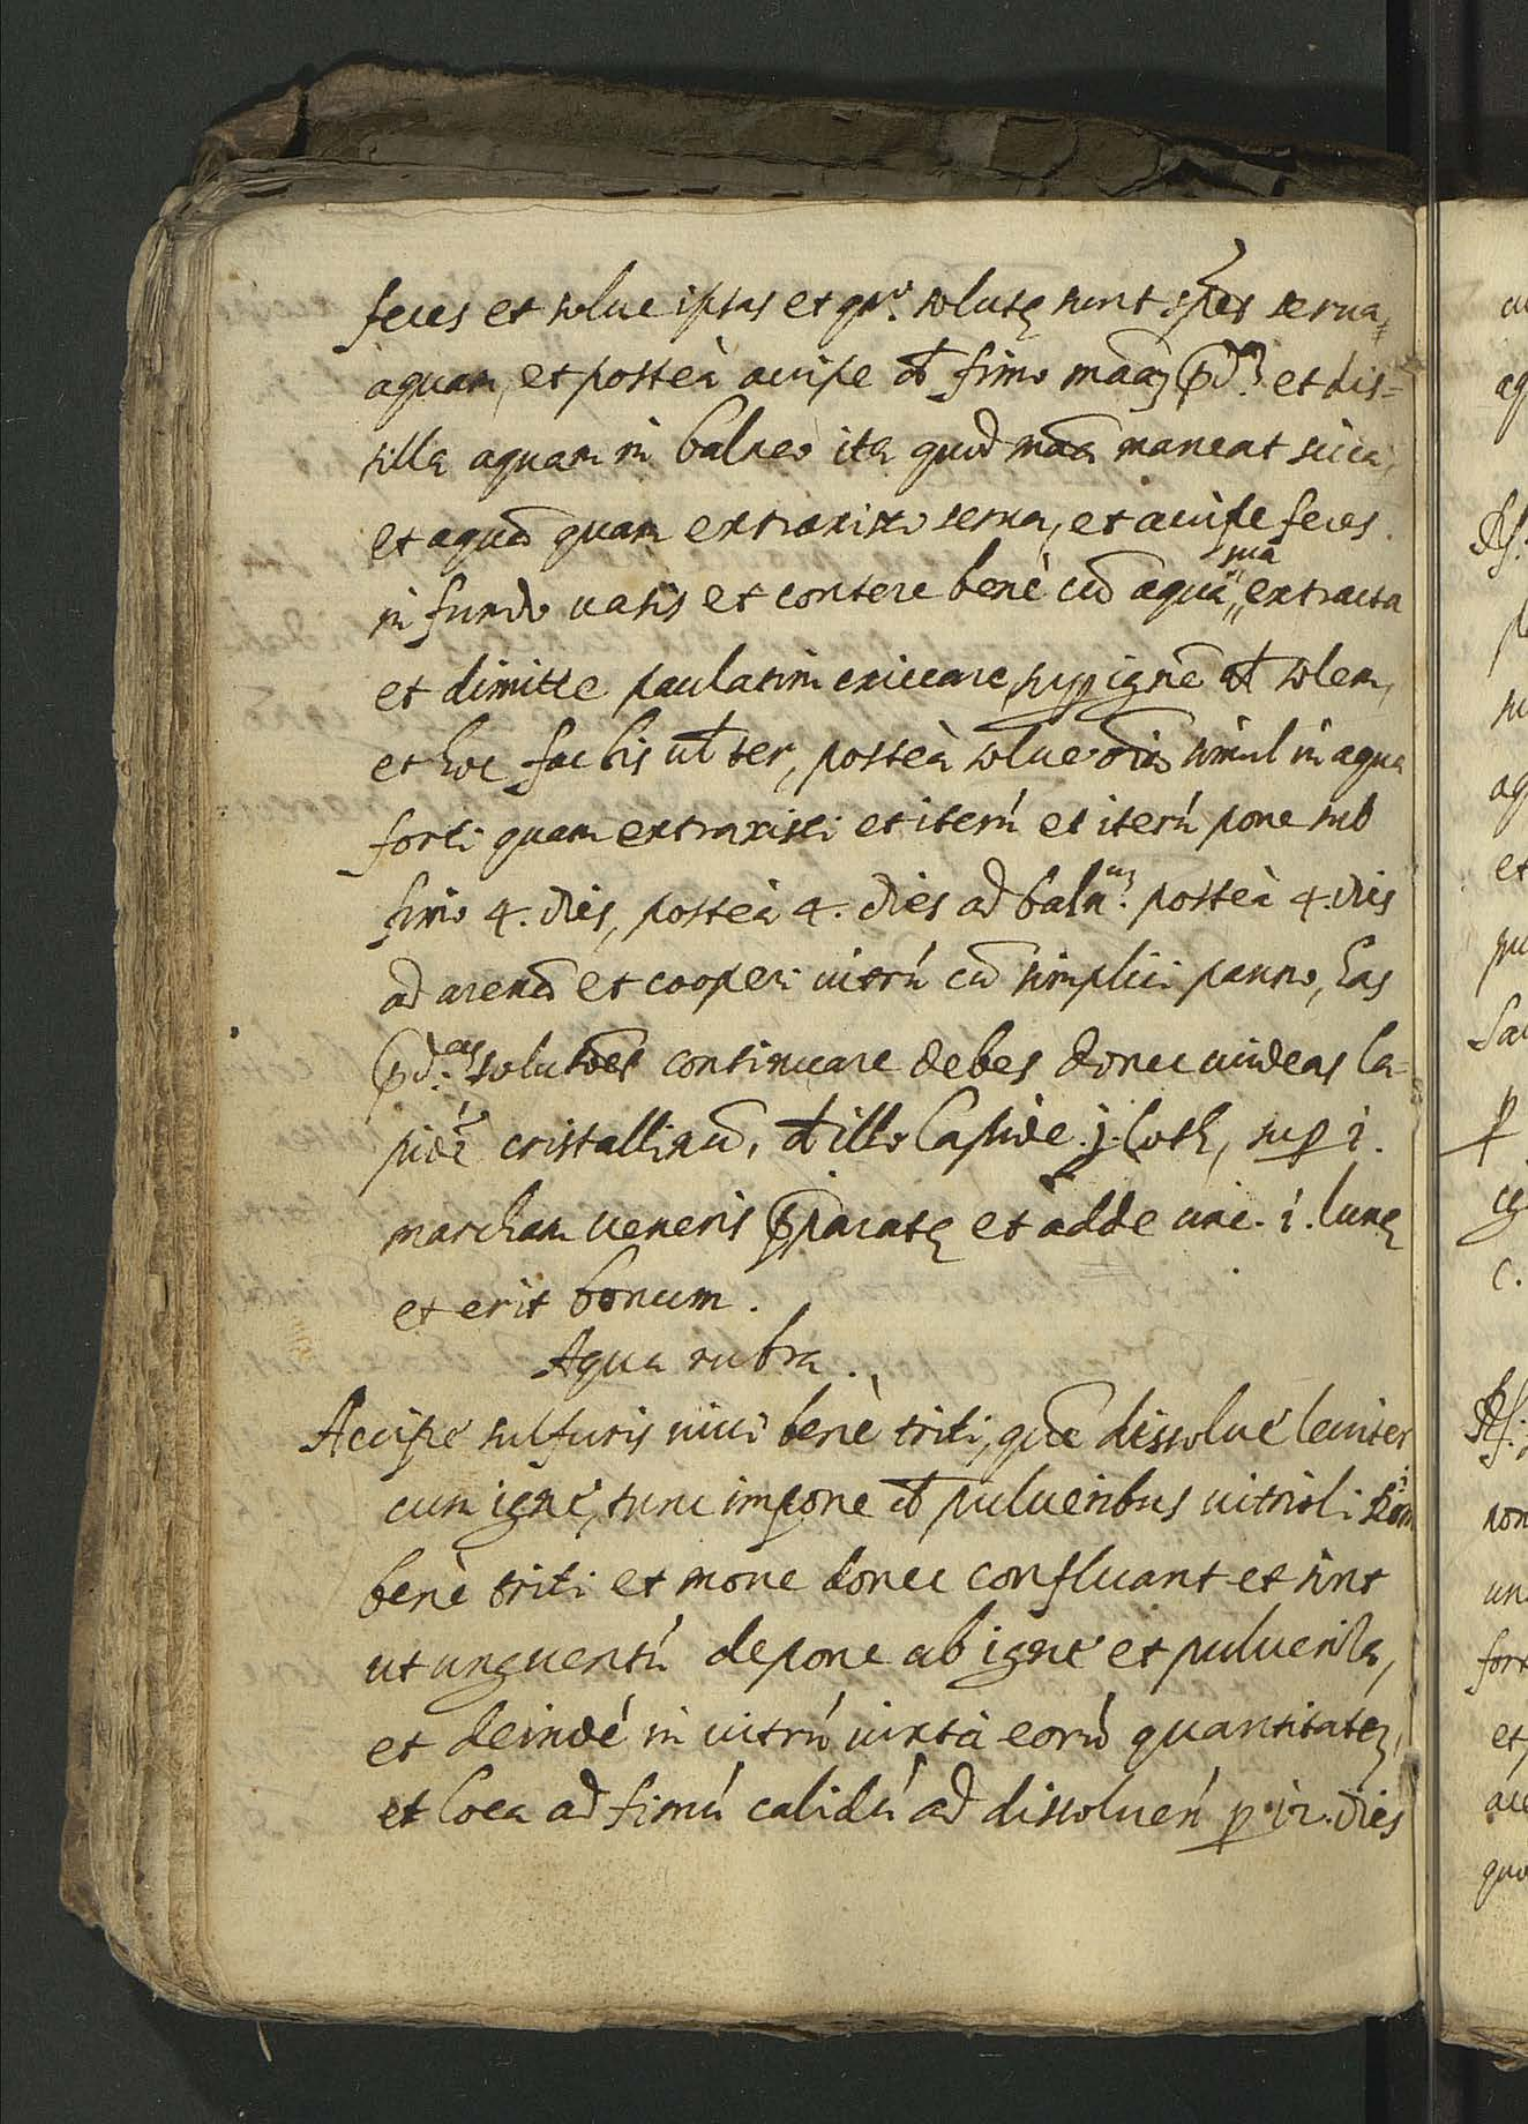 feces et solue ipsas et qnͦ. solutę sunt spe͠s serua,
aquam, et posteà accipe đ fimo mãaz p̃d.ᵃᵐ et dis=
tilla aquam in balneo ita quod mãa maneat sicca,
et aquã quam extraxisti serua, et accipe feces
in fundo uasis et contere benè cũ aqua sua extracta
et dimitte paulatim exiccare, sup ignẽ et solem,
et hoc facbis ter, posteà solue oĩa simul in aqua
forti quam extraxisti et iterú et iterú pone sub
fimo 4. dies, posteà 4. dies ad baln.ᵘᵐ posteà 4. dies
ad arenã et cooperi uitrú cũ simplici panno, has
p̃d.ᵃˢ solutões continuare debes donec uideas la=
pidẽ cristallinũ, đ illo lapide .j. loth, sup i.
marcham ueneris p̃paratę et adde unc. i. lunę
et erit bonum.
Aqua rubra.
Accipe sulfuris uiui benè triti, que dissolue leuiter
cum igne, tunc impone đ pulueribus uitrioli
benè triti et moue donec confluant et sint
ut unguentú depone ab igne et pulueriza,
et deinde in uitrú iuxtà eorũ quantitatez,
et loca ad fimú calidú ad dissolueń p 12. dies